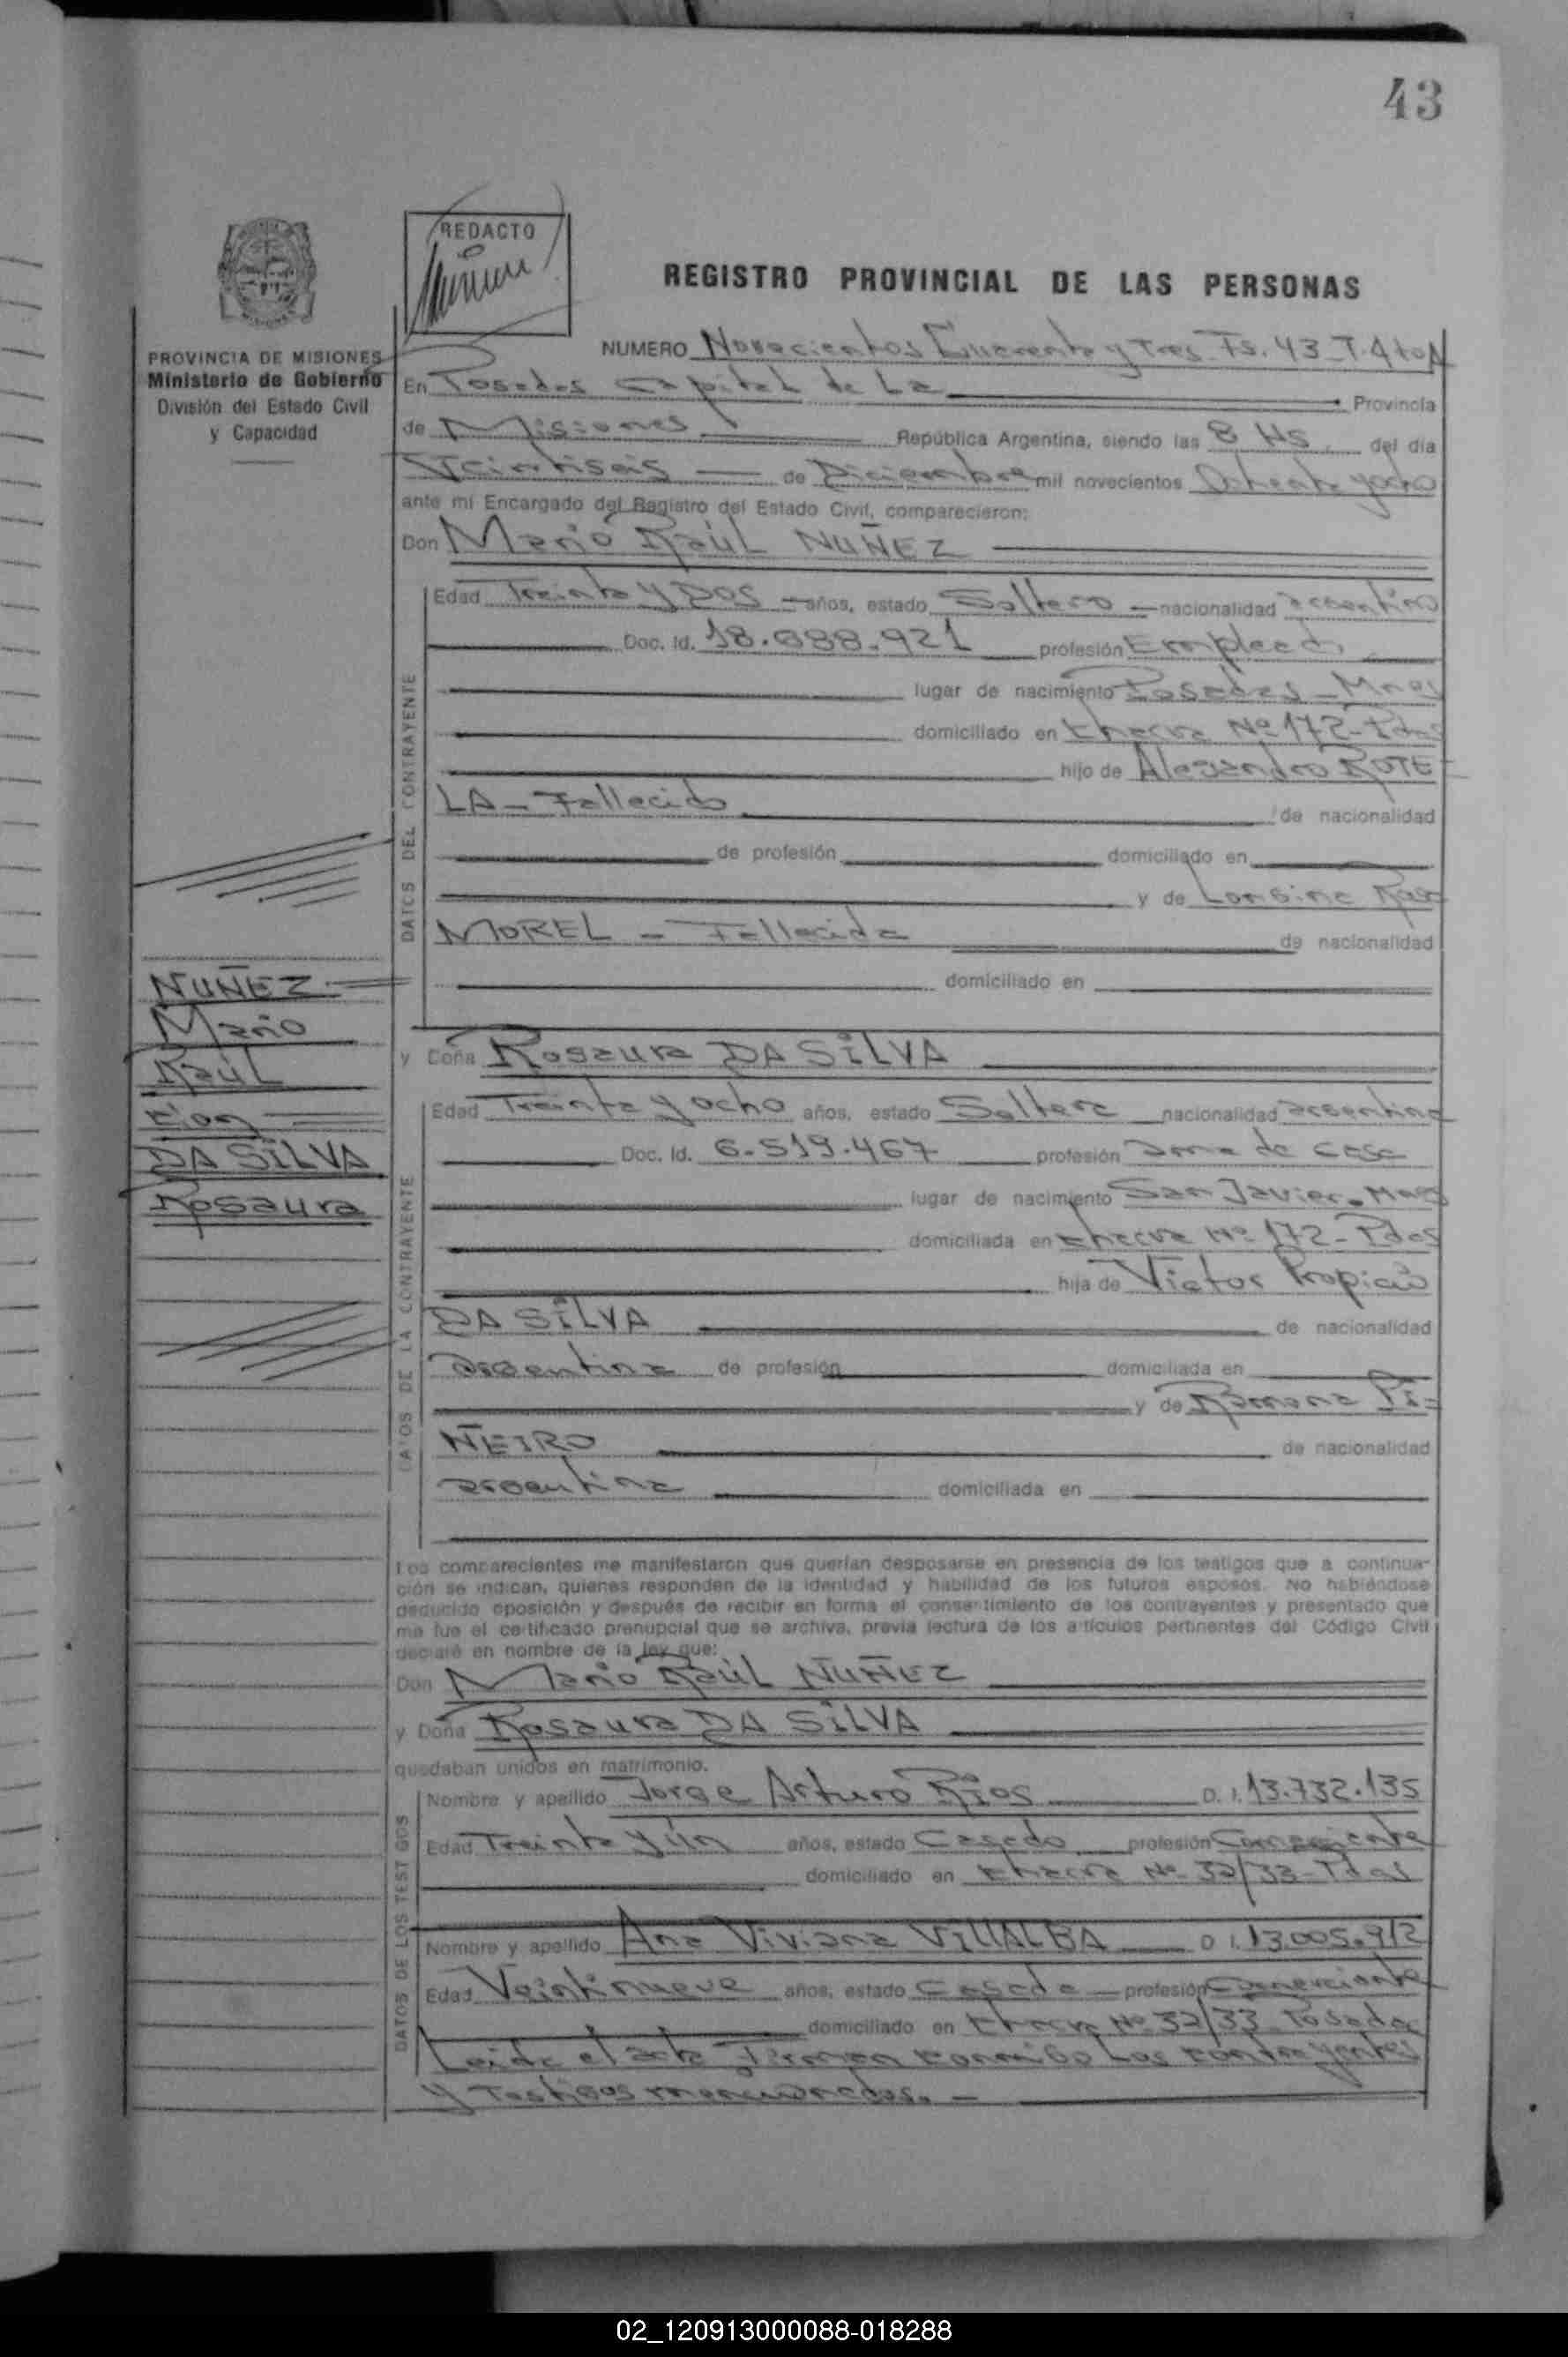 43
REDACTO
REGISTRO PROVINCIAL DE LAS PERSONAS
PROVINCIA DE MISIONES
Ministerio de Gobierno
División del Estado Civil
y Capacidad
NUMERO Novecientos Cuarenta y Tres Fs. 43 - T. 4to
En Posadas Capital de La Provincia
de Misiones República Argentina, siendo las 8 Hs. del día
Veintiseis de Diciembre mil novecientos Ochenta y ocho
ante mí Encargado del Registro del Estado Civil, comparecieron:
Don Mario Raúl NUÑEZ
DATOS DEL CONTRAYENTE
Edad Treinta y Dos años, estado Soltero nacionalidad argentino
Doc. Id. 18.688.921 profesión Empleado
lugar de nacimiento Posadas - Mnes
domiciliado en Chacra Nº 172 - Pdas
hijo de Alejandro ROTE
LA - Fallecido de nacionalidad
de profesión domiciliado en
y de Rosa
MOREL - Fallecida de nacionalidad
domiciliado en
NUÑEZ
Mario
Raúl
con
DA SILVA
Rosaura
y Doña Rosaura DA SILVA
DATOS DE LA CONTRAYENTE
Edad Treinta y ocho años, estado Soltera nacionalidad argentina
Doc. Id. 6.519.467 profesión ama de casa
lugar de nacimiento San Javier - Mnes
domiciliada en Chacra Nº 172 - Pdas
hija de Victor Propicio
DA SILVA de nacionalidad
argentina de profesión domiciliada en
y de Ramona PI=
ÑEIRO de nacionalidad
argentina domiciliada en
Los comparecientes me manifestaron que querían desposarse en presencia de los testigos que a continua-
ción se indican, quienes responden de la identidad y habilidad de los futuros esposos. No habiéndose
deducido oposición y después de recibir en forma el consentimiento de los contrayentes y presentado que
me fue el certificado prenupcial que se archiva, previa lectura de los artículos pertinentes del Código Civil
declaré en nombre de la ley que:
Don Mario Raúl NUÑEZ
y Doña Rosaura DA SILVA
quedaban unidos en matrimonio.
DATOS DE LOS TESTIGOS
Nombre y apellido Jorge Arturo Ríos D. I. 13.732.135
Edad Treinta y ún años, estado Casado profesión Comerciante
domiciliado en Chacra Nº 32/33 - Pdas
Nombre y apellido Ana Viviana VILLALBA D I. 13.005.912
Edad Veintinueve años, estado Casada profesión Comerciante
domiciliado en Chacra Nº 32/33 Posadas
Leida el acta Firman conmigo Los contrayentes
y Testigos mencionados. -
02_120913000088-018288